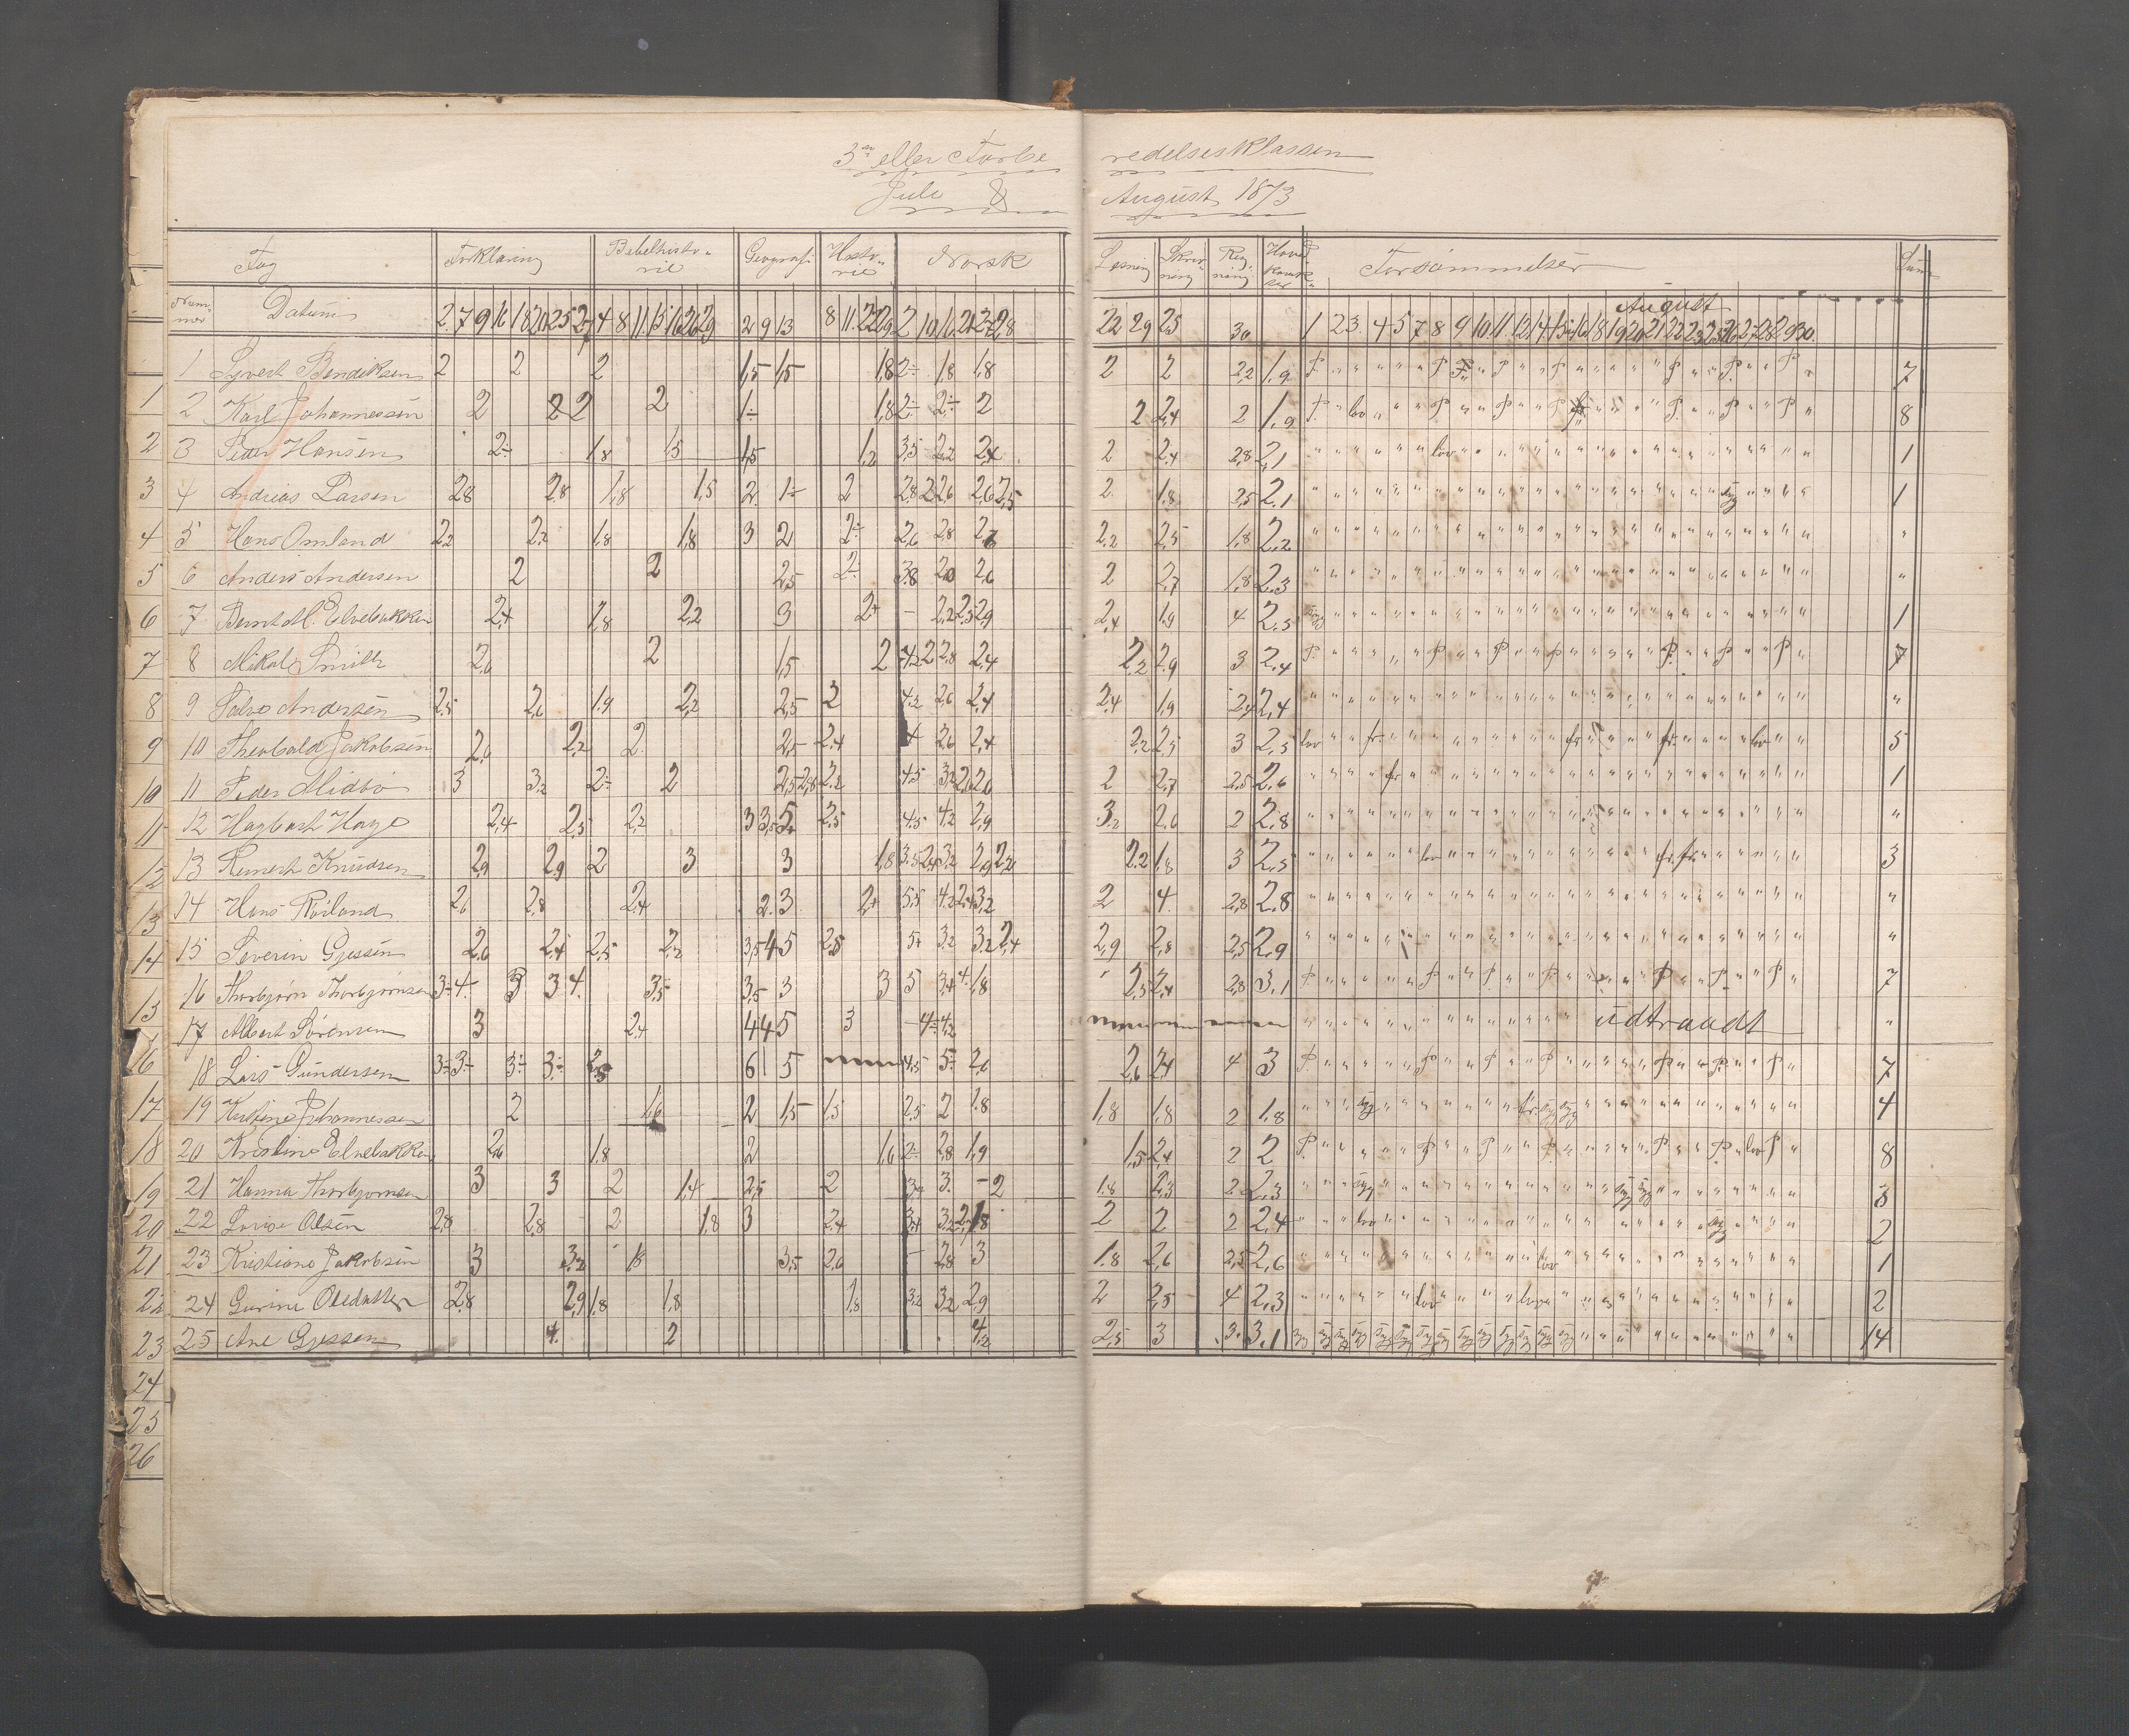 3die eller Forbe redelsesklassen
Juli & August 1873
Fag Forklaring Bibelhisto- rie Geografi Histo- rie Norsk Læsning Skriv- ning Reg- ning Hoved karak- ter Forsømmelser Sum
Num- mer Datum 2 7 9 16 18 21 25 27 4 8 11 15 16 26 29 2 9 13 8 11 22 29 2 10 16 21 27 28 22 29 25 30 August
1 2 3 4 5 7 8 9 10 11 12 14 15 16 18 19 20 21 22 23 25 26 27 28 29 30
1 Syvert Bendiksen 2 2 2 1,5 1,5 1,8 2÷ 1,8 1,8 2 2 2,2 1,9 7
2 Karl Johannessen 2 2 2 2 1÷ 1,8 2÷ 2÷ 2 2 2,4 2 1,9 8
3 Peder Hansen 2÷ 1,8 1,5 1,5 1,2 3,5 2,2 2,4 2 2,4 2,8 2,1 1
4 Andreas Larsen 2,8 2,8 1,8 1,5 2 1÷ 2 2,8 2 2,6 2,6 2,5 2 1,8 2,5 2,1 syg 1
5 Hans Omland 2,2 2,2 1,8 1,8 3 2 2÷ 2,6 2,8 2,2 2,5 1,8 2,2 "
6 Anders Andersen 2 2 2,5 2÷ 3,8 2,0 2,6 2 2,7 1,8 2,3 "
7 Bernt M. Elvebakken 2,4 1,8 2,2 3 2+ - 2,2 2,5 2,9 2,4 1,9 4 2,5 syg 1
8 Mikal Smith 2,6 2 1,5 2 4,2 2 2,8 2,4 2,2 2,9 3 2,4 7
9 Salve Andersen 2,5 2,6 1,9 2,2 2,5 2 4,2 2,6 2,4 2,4 1,9 2,4 2,4 "
10 Theobald Jakobsen 2,6 2,2 2 2,5 2,4 4 2,6 2,4 2,2 2,5 3 2,5 lov fr. fr fr. lov 5
11 Peder Midbø 3 3,2 2÷ 2 2,5 2,8 2,2 4,5 3,2 2,6 2,6 2 2,7 2,5 2,6 fr 1
12 Hagbart Hage 2,4 2,5 2,2 3 3,5 5 2,5 4,5 4,2 2,9 3,2 2,6 2 2,8 "
13 Reinert Knudsen 2,9 2,9 2 3 3 1,8 3,5 2,4 3,2 2,9 2,2 2,2 1,8 3 2,5 lov fr. fr. 3
14 Hans Roiland 2,6 2,8 2,4 2 3 2+ 5,5 4,2 2,4 3,2 2 4 2,8 2,8 "
15 Severin Gjessen 2,6 2,4 2,5 2,2 3,5 4 5 2,5 5+ 3,2 3,2 2,4 2,9 2,8 2,5 2,9 "
16 Thorbjørn Thorbjørnsen 3÷ 4 3 3 4 3,5 3,5 3 3 5 3,4 4 1,8 2,5 2,4 2,8 3,1 7
17 Albert Sørensen 3 2,4 4 4 5 3 - 4÷ 4,2 udtraadt "
18 Lars Gundersen 3÷ 3÷ 3÷ 3÷ 2,5 6 5 4,5 5÷ 2,6 2,6 2,4 4 3 7
19 Kristine Johannessen 2 1,6 2 1,5 1,5 2,5 2 1,8 1,8 1,8 2 1,8 syg fr. syg syg 4
20 Kristine Elvebakken 2,6 1,8 2 1,6 2÷ 2,8 1,9 1,5 2,4 2 2 lov 8
21 Hanna Thorbjørnsen 3 3 2 1,4 2,5 2 3 - 2 1,8 2,3 2 2,3 syg syg syg 3
22 Lovise Olsen 2,8 2,8 2 1,8 3 2,4 3,4 3,2 2 2 2 2,4 lov syg 2
23 Kristiane Jakobsen 3 3,2 1,8 3,5 2,6 - 2,8 3 1,8 2,6 2,5 2,6 lov 1
24 Gurine Olsdatter 2,8 2,9 1,8 1,8 1,8 3,2 3,2 2,9 2 2,5 4 2,3 lov lov 2
25 Ane Gjessen 4 2 4,2 2,5 3 3 3,1 syg syg syg syg syg syg syg syg syg syg syg syg syg syg 14
1
2
3
4
5
6
7
8
9
10
11
12
13
14
15
16
17
18
19
20
21
22
23
24
25
26